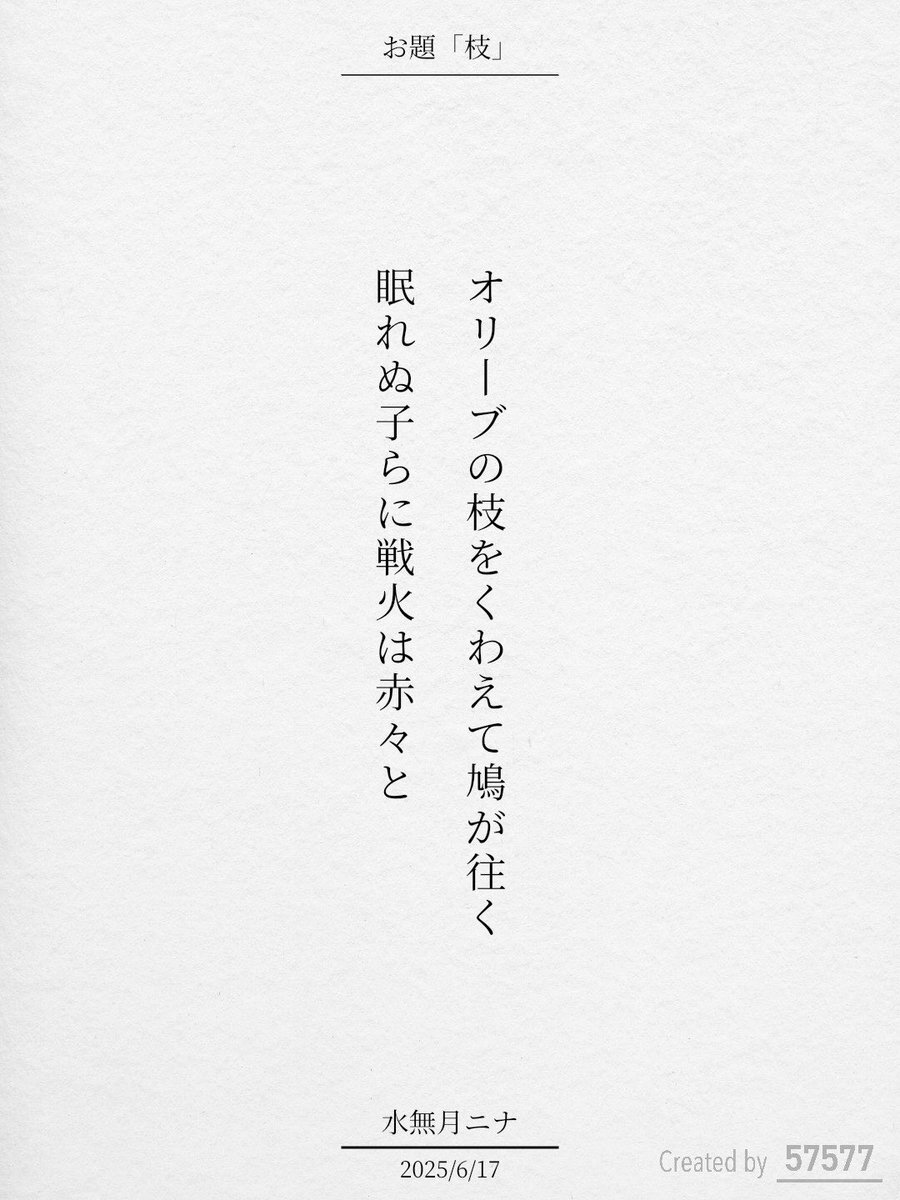 お題「枝」
オリーブの枝をくわえて鳩が往く
眠れぬ子らに戦火は赤々と
水無月ニナ
2025/6/17
Created by 57577